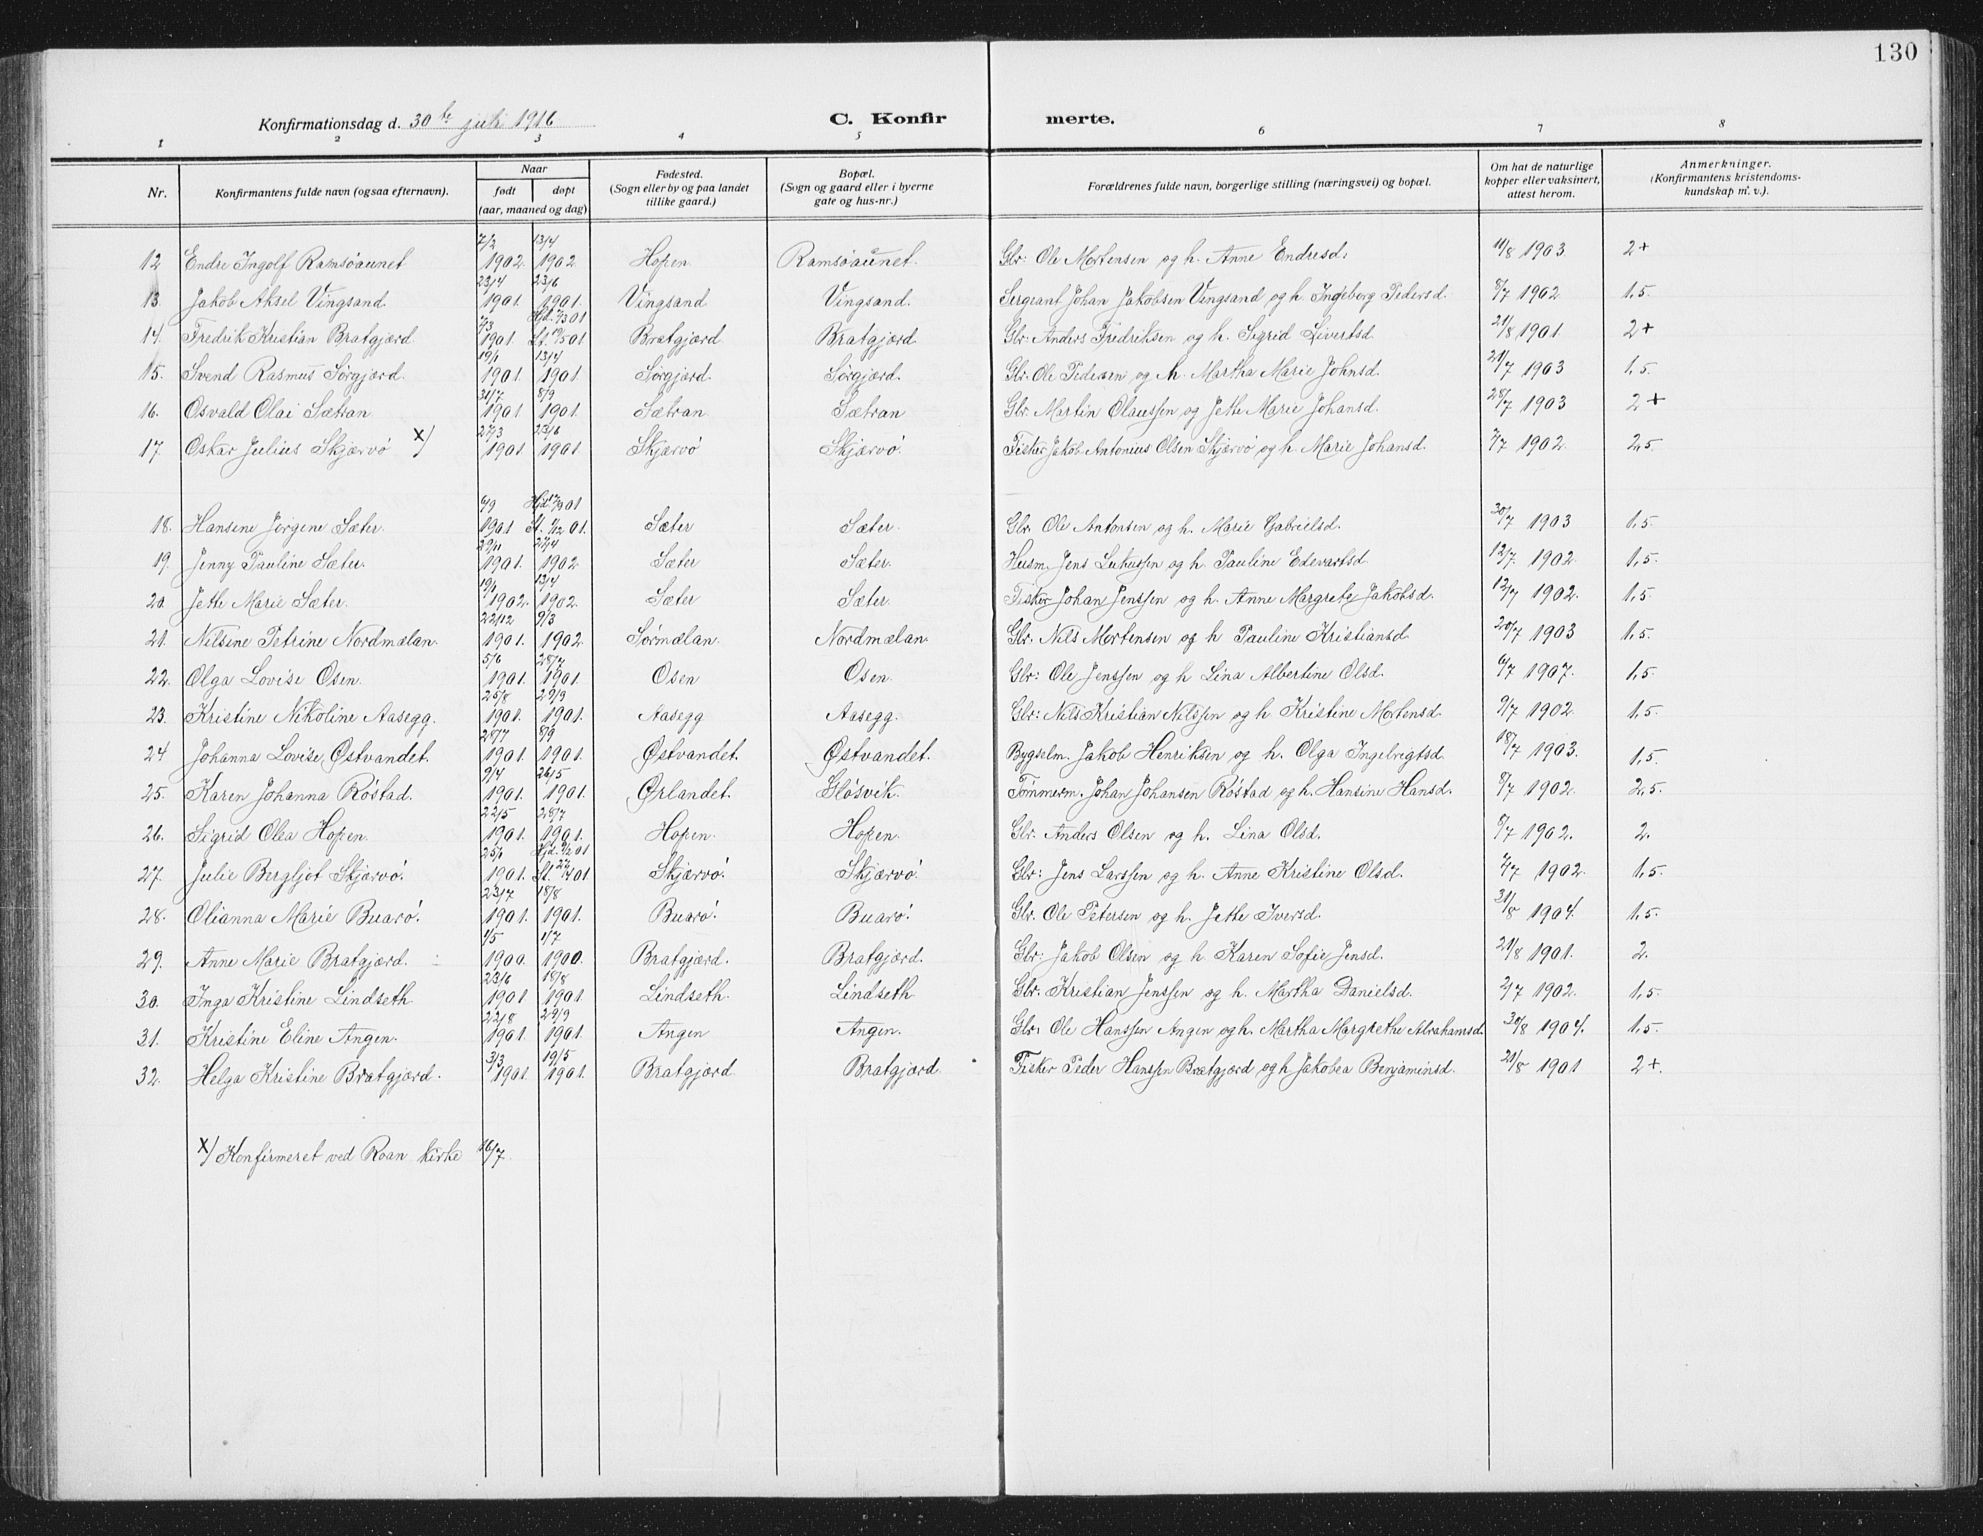 130
Konfirmationsdag d. 30te juli 1916 C. Konfir merte.
1 2 3 4 5 6 7 8
Nr. Konfirmantens fulde navn (ogsaa efternavn). Naar født døpt (aar, maaned og dag) Fødested. (Sogn eller by og paa landet tillike gaard.) Bopæl. (Sogn og gaard eller i byerne gate og hus-nr.) Forældrenes fulde navn, borgerlige stilling (næringsvei) og bopæl. Om hat de naturlige kopper eller vaksinert, attest herom. Anmerkninger. (Konfirmantens kristendoms-kundskap m. v.).
12 Endre Ingolf Ramsøaunet 7/2 1902. 13/4 1902 Hopen Ramsøaunet. Gbr: Ole Mortensen og h. Anne Endresd. 11/8 1903 2+
13. Jakob Aksel Vingsand 23/4 1901. 23/6 1901. Vingsand Vingsand. Sergeant Johan Jakobsen Vingsand og h. Ingeborg Pedersd. 8/7 1902 1,5.
14. Fredrik Kristian Bratgjærd 7/3 1901. Hjd. 01 St. 01 Bratgjærd Bratgjærd Gbr: Anders Fredriksen og h. Sigrid Sivertsd. 21/8 1901 2+
15. Svend Rasmus Sørgjærd. 19/1 1901. 13/4 1901. Sørgjærd. Sørgjærd. Gbr. Ole Pedersen og h. Martha Marie Johnsd. 21/7 1903 1,5.
16. Osvald Olai Sætran 31/7 1901 8/9 1901. Sætran Sætran Gbr. Martin Olaussen og Jette Marie Johansd. 28/7 1903 2+
17. Oskar Julius Skjærvø x) 27/3 1901 23/6 1901 Skjærvø Skjærvø. Fisker Jakob Antonius Olsen Skjærvø og h. Marie Johansd. 7/7 1902. 2,5.
18. Hansine Jørgine Sæter. 6/9 1901 Hjd. 01. St. 1/12 01. Sæter Sæter. Gbr. Ole Antonsen og h. Marie Gabrielsd. 30/7 1903 1,5.
19. Jenny Pauline Sæter. 29/11 1901. 27/4 1902 Sæter Sæter. Husm. Jens Lukassen og h. Pauline Edevartsd 12/7. 1902. 1,5.
20. Jette Marie Sæter. 19/1 1902. 13/4 1902. Sæter Sæter. Fisker Johan Jenssen og h. Anne Margrete Jakobsd. 12/7 1902. 1,5.
21. Nilsine Petrine Nordmælan. 22/12 1901. 9/3 1902 Sørmælan. Nordmælan. Gbr. Nils Mortensen og h Pauline Kristiansd. 20/7 1903 1,5.
22. Olga Lovise Osen. 5/6 1901. 28/7 1901. Osen Osen. Gbr: Ole Jenssen og h Lina Albertine Olsd. 6/7 1907. 1,5.
23. Kristine Nikoline Aasegg. 25/8 1901. 29/9 1901. Aasegg Aasegg. Gbr: Nils Kristian Nilssen og h Kristine Mortensd. 9/7 1902. 1,5.
24 Johanna Lovise Østvandet. 28/7 1901. 8/9 1901. Østvandet. Østvandet. Bygselm. Jakob Henriksen og h. Olga Ingebrigtsd. 18/7 1903. 1,5.
25. Karen Johanna Røstad. 9/4 1901. 26/5 1901. Ørlandet. Sløsvik. Tømmerm. Johan Johansen Røstad og h. Hansine Hansd. 8/7 1902. 2,5.
26. Sigrid Olea Hopen. 22/5 1901. 28/7 1901. Hopen. Hopen. Gbr. Anders Olsen og h. Lina Olsd. 1902. 2.
27. Julie Bergljot Skjærvø. 25/1 1901. Hjd. 01 St. 01 Skjærvø. Skjærvø. Gbr: Jens Larssen og h. Anne Kristine Olsd. 1902. 1,5.
28. Olianna Marie Buarø. 23/7 1901. 18/8 1901. Buarø. Buarø. Gbr. Ole Petersen og h. Jette Iversd. 31/8 1904. 1,5.
29. Anne Marie Bratgjærd. 1/5 1900. 1/7 1900. Bratgjærd. Bratgjærd. Gbr: Jakob Olsen og h Karen Sofie Jensd. 21/8 1901. 2.
30. Inga Kristine Lindseth. 23/6 1901 18/8 1901 Lindseth. Lindseth Gbr. Kristian Jenssen og h. Martha Danielsd. 2/7 1902. 1,5.
31. Kristine Eline Angen. 22/8 1901 29/9 1901. Angen Angen. Gbr: Ole Hanssen Angen og h. Martha Margrethe Abrahamsd. 30/8 1904. 1,5.
32. Helga Kristine Bratgjærd. 3/3 1901. 19/5 1901. Bratgjærd Bratgjærd. Fisker Peder Hanssen Bratgjærd og h Jakobea Benjaminsd. 21/8 1901 2+.
x) Konfirmeret ved Roan kirke 16/7.